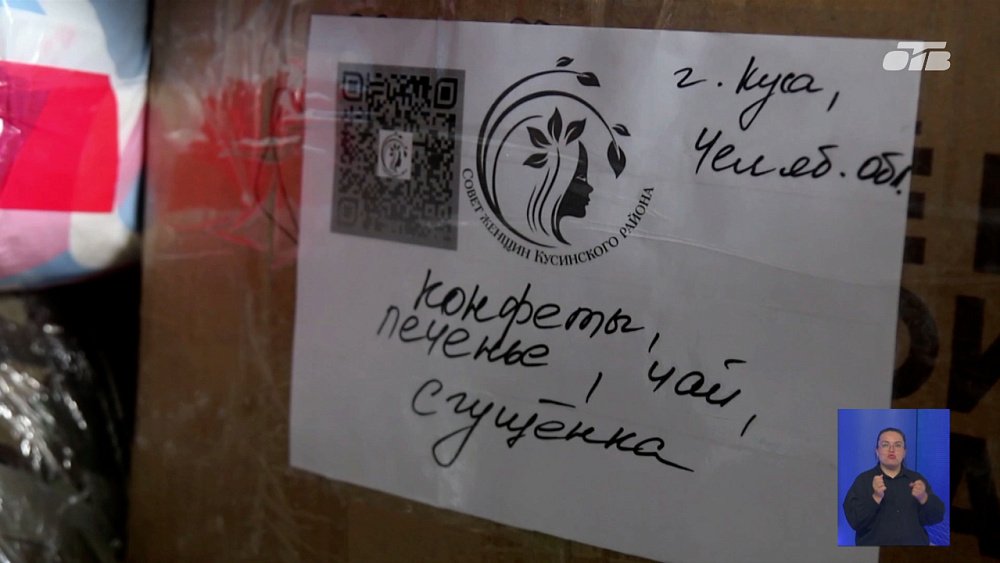 ОТВ
г. Куса,
Челяб. обл.
СОВЕТ ЖЕНЩИН КУСИНСКОГО РАЙОНА
Конфеты,
печенье, чай,
сгущёнка